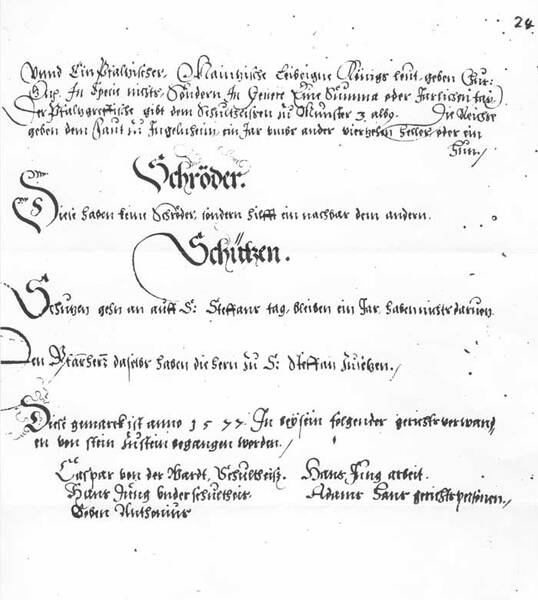 24
Vnnd Ein Pfaltzischer, Maintzische Leibeigne Königs leut, geben Chur:
In Specie nichts, Sondern In Genere Eine Summa oder Jarlichen tax
Der Pfaltzgreffische gibt dem Schultheisen zu Munster 3 albo. Die Reichs
geben dem Faut zu Ingelnheim, ein Jar vmbs ander vierzehen heller, oder ein
Hun./
Schröder.
Diese haben keine Schröder, sondern hilfft ein nachbar dem andern.
Schützen.
Schutzen gehn an auff S: Steffans tag, bleiben ein Jar, haben nichts daruon.
Den Pfarrherr daselbs haben die hern zu S: Steffan zusetzen./
Diese gemarck ist anno 1577. In beysein folgender gerichts verwand
en von stein zu stein begangen worden./
Caspar von der Wardt, Schultheiß. Hans Jung
Hans Jung vnderschultheis. Adams Hans gerichtspersonen./
Anthonius